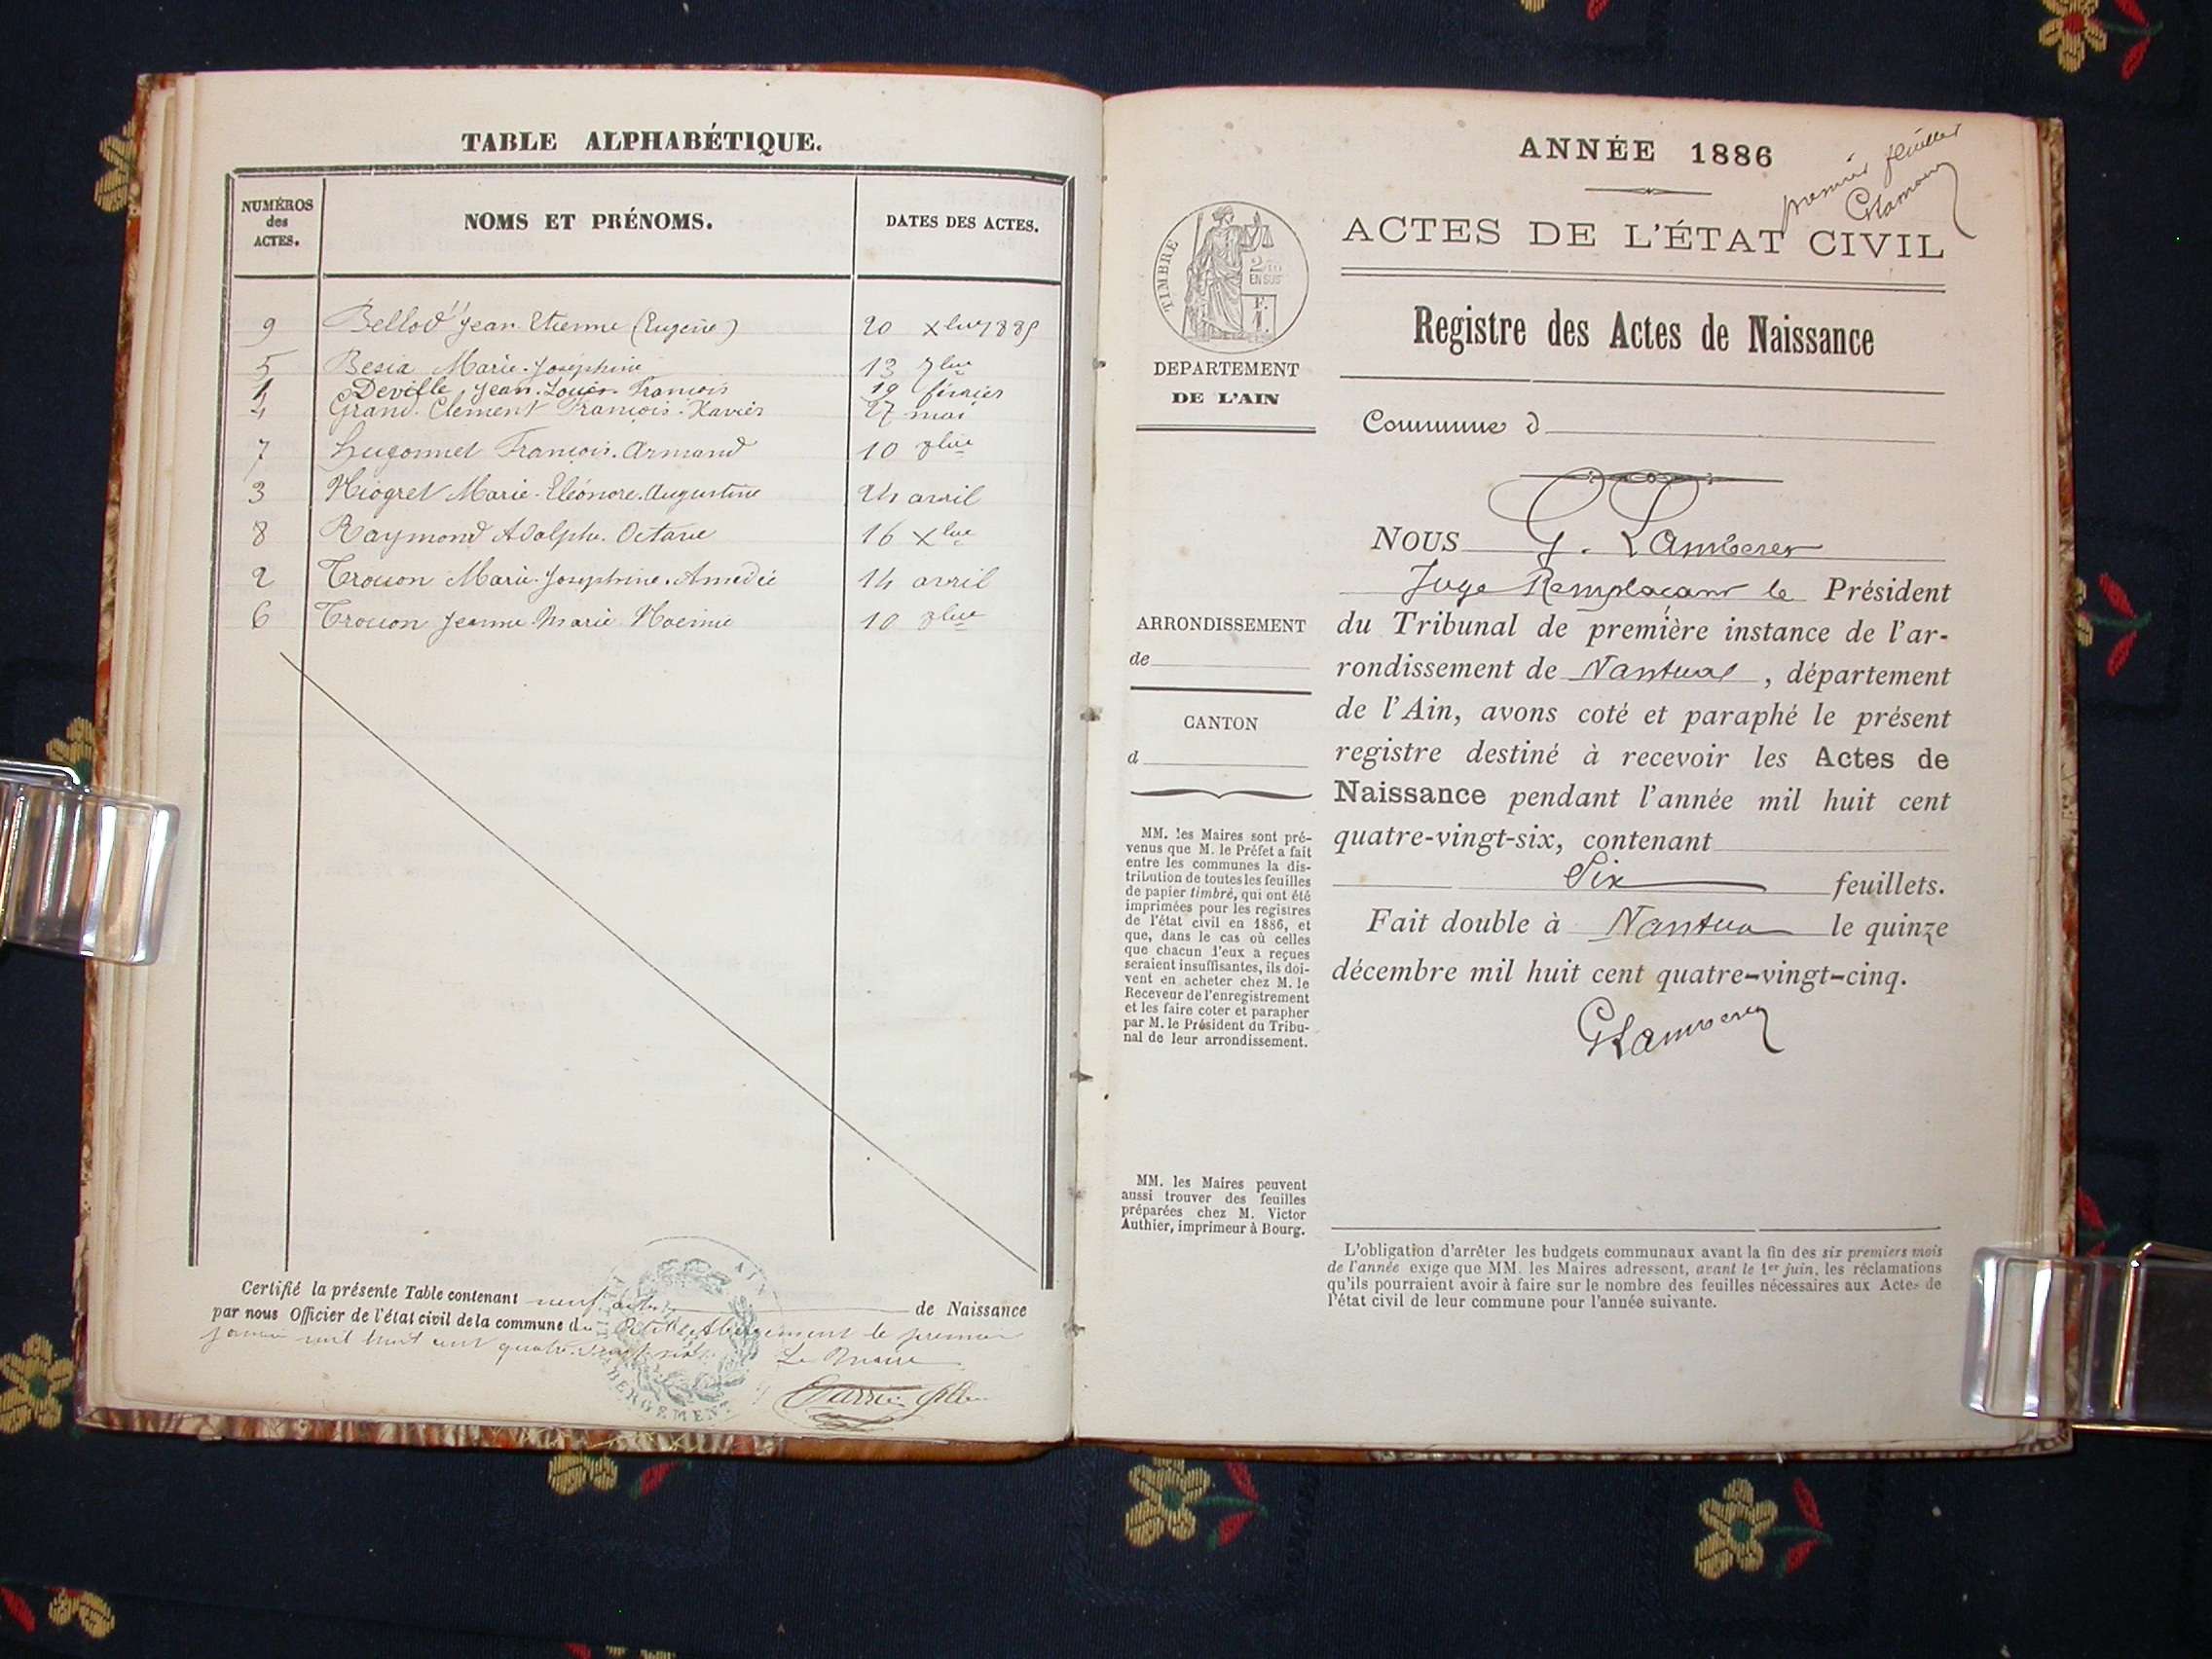 TABLE ALPHABÉTIQUE.
NUMÉROS des ACTES.
NOMS ET PRÉNOMS.
DATES DES ACTES.
9 Bellod Jean Etienne (Eugène) 20 Xbre 1885
5 Besia Marie-Joséphine 13 7bre
1 Deville, Jean-Louis-François 19 février
4 Grand-Clément François-Xavier 27 mai
7 Hugonnet François-Armand 10 9bre
3 Niogret Marie-Eléonore-Augustine 24 avril
8 Raymond Adolphe Octave 16 Xbre
2 Trouon Marie-Joséphine-Amédée 14 avril
6 Trouon Jeanne Marie Noémie 10 9bre
Certifié la présente Table contenant neuf actes de Naissance
par nous Officier de l'état civil de la commune du Petit Abergement le premier
janvier mil huit cent quatre-vingt-six
Le Maire
ANNÉE 1886
premier feuillet
ACTES DE L'ÉTAT CIVIL
TIMBRE
2/10
EN SUS
Registre des Actes de Naissance
DEPARTEMENT
DE L'AIN
Commune d
NOUS G. Lamberet
Juge Remplaçant le Président
du Tribunal de première instance de l'ar-
rondissement de Nantua, département
de l'Ain, avons coté et paraphé le présent
registre destiné à recevoir les Actes de
Naissance pendant l'année mil huit cent
quatre-vingt-six, contenant
Six feuillets.
Fait double à Nantua le quinze
décembre mil huit cent quatre-vingt-cinq.
GLamberet
ARRONDISSEMENT
de
CANTON
d
MM. les Maires sont pré-
venus que M. le Préfet a fait
entre les communes la dis-
tribution de toutes les feuilles
de papier timbré, qui ont été
imprimées pour les registres
de l'état civil en 1886, et
que, dans le cas où celles
que chacun d'eux a reçues
seraient insuffisantes, ils doi-
vent en acheter chez M. le
Receveur de l'enregistrement
et les faire coter et parapher
par M. le Président du Tribu-
nal de leur arrondissement.
MM. les Maires peuvent
aussi trouver des feuilles
préparées chez M. Victor
Authier, imprimeur à Bourg.
L'obligation d'arrêter les budgets communaux avant la fin des six premiers mois
de l'année exige que MM. les Maires adressent, avant le 1er juin, les réclamations
qu'ils pourraient avoir à faire sur le nombre des feuilles nécessaires aux Actes de
l'état civil de leur commune pour l'année suivante.